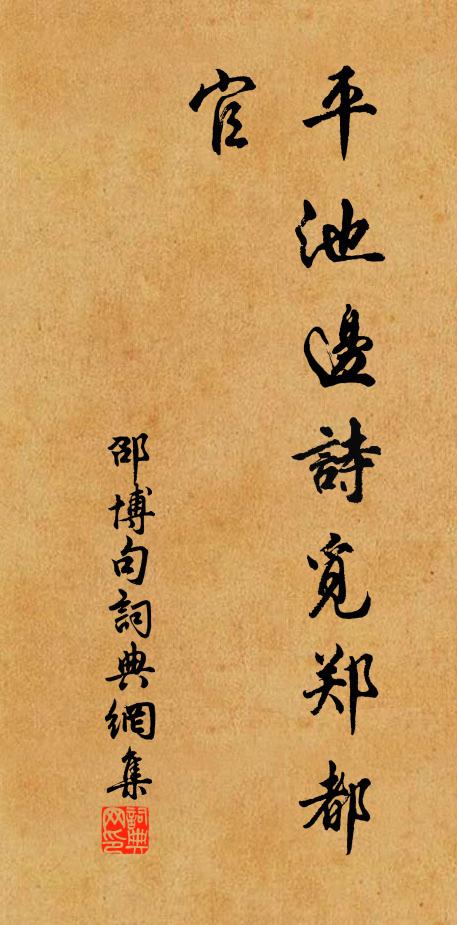 平池邊詩覓郑都
官
邵博句詞典網集
詞典
网印